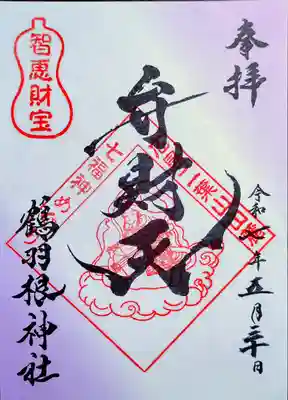 奉拝
智恵財宝
弁財天
七福神め
二葉山
令和七年五月三十日
鶴羽根神社